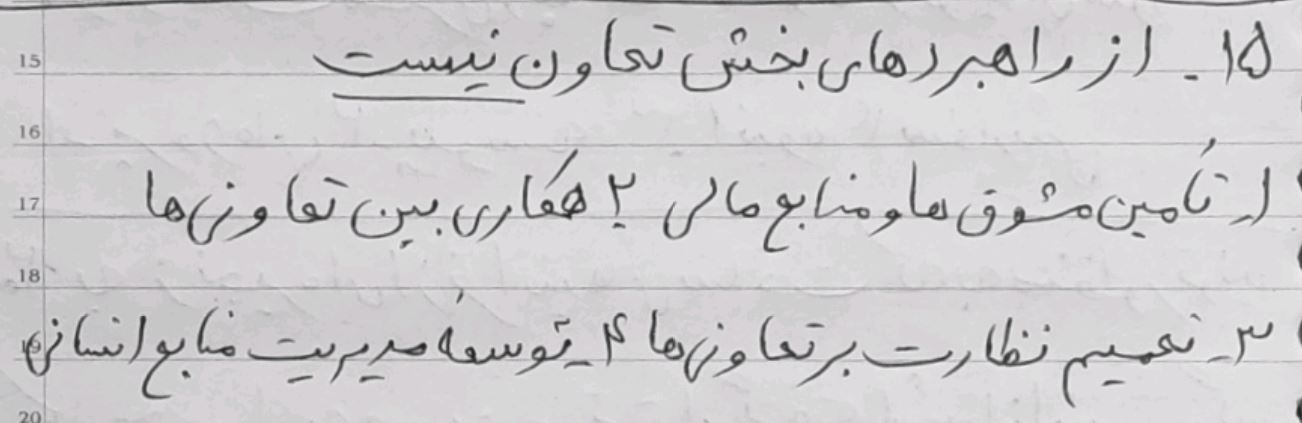 ۱۵- از راهبردهای بخش تعاون نیست
۱- تأمین مشوق ها و منابع مالی ۲ همکاری بین تعاونی ها
۳- تعمیم نظارت بر تعاونی ها ۴- توسعهٔ مدیریت منابع انسانی
15
16
17
18
19
20